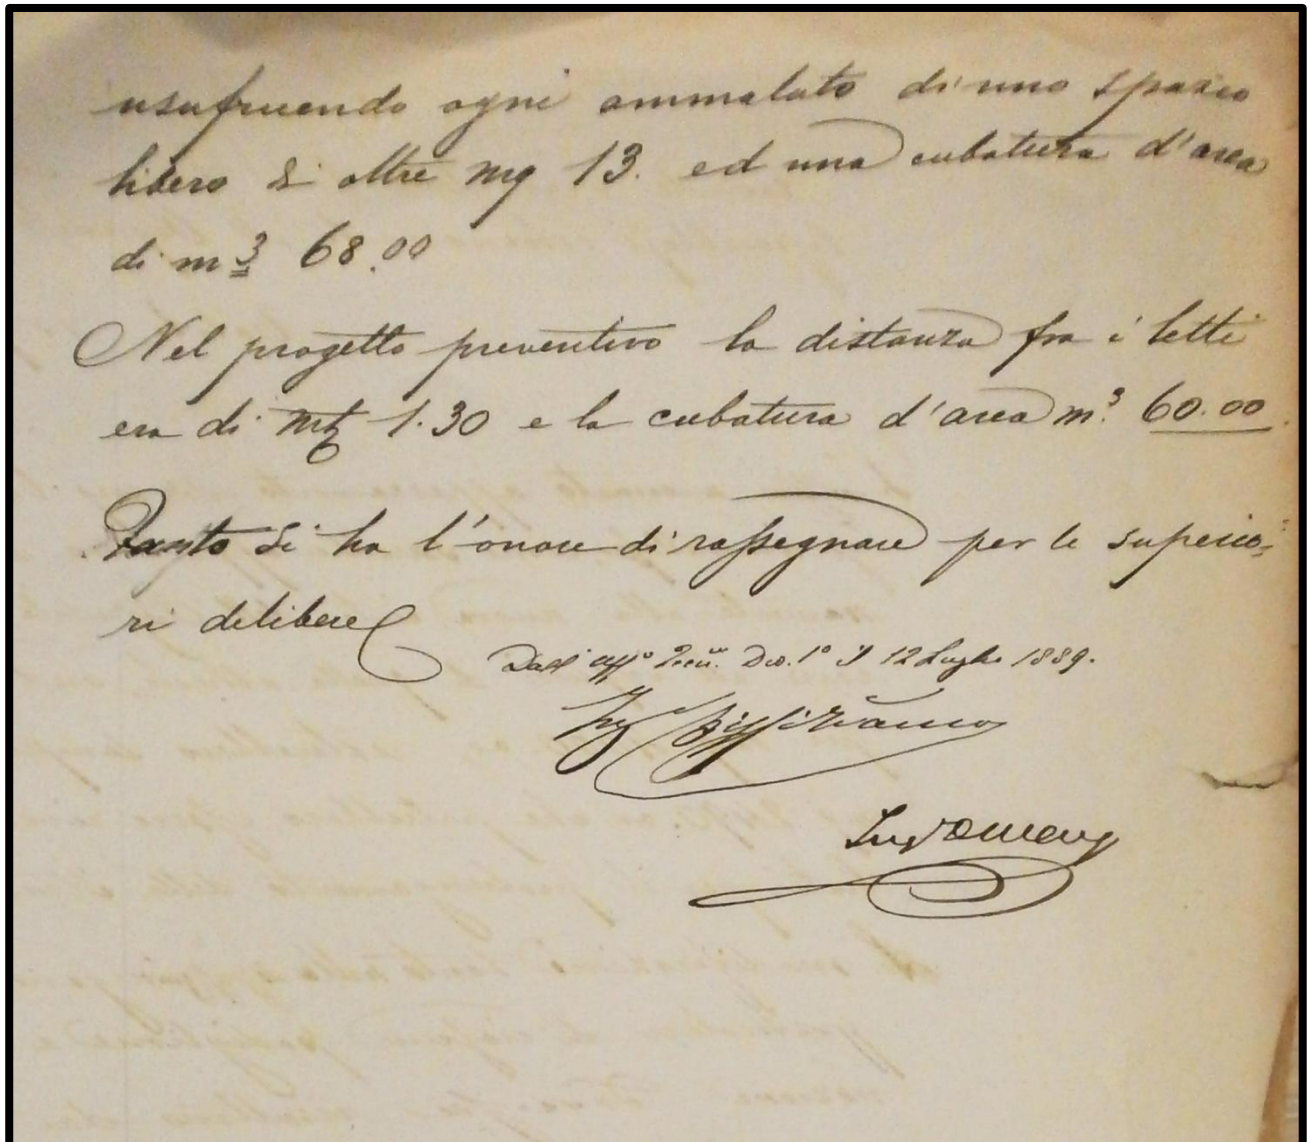 usufruendo ogni ammalato di uno spazio
libero di oltre mq 13. ed una cubatura d'area
di m3 68.00
Nel progetto preventivo la distanza fra i letti
era di Mt 1.30 e la cubatura d'area m.3 60.00
Tanto si ha l'onore di rassegnare per le superio-
ri delibere
Dall' uffo Div. 1o il 12 Luglio 1889.
Ing
Ing